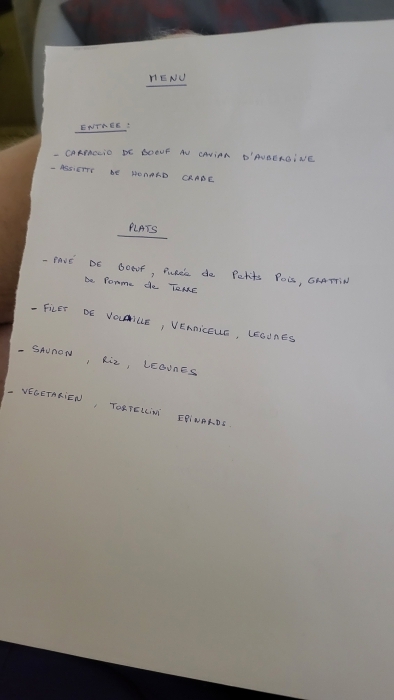 MENU
ENTREE :
- CARPACCIO DE BOEUF AU CAVIAR D'AUBERGINE
- ASSIETTE DE HOMARD CRABE
PLATS
- PAVÉ DE BOEUF, Purée de Petits Pois, GRATTIN
De Pomme de TERRE
- FILET DE VOLAILLE, VERMICELLE, LEGUMES
- SAUMON, Riz, LEGUMES
- VEGETARIEN, TORTELLINI EPINARDS.